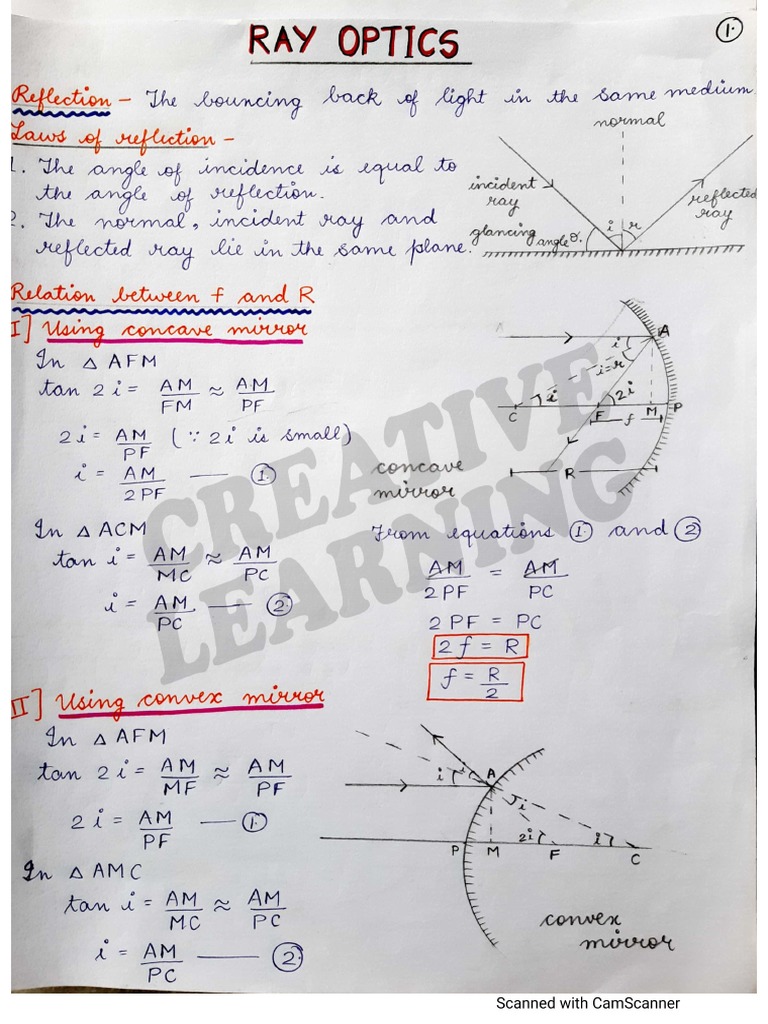 RAY OPTICS
1.
Reflection - The bouncing back of light in the same medium
Laws of reflection -
1. The angle of incidence is equal to
the angle of reflection.
2. The normal, incident ray and
reflected ray lie in the same plane.
normal
incident
ray
reflected
ray
glancing
angle θ.
i
r
Relation between f and R
I] Using concave mirror
In △ AFM
tan 2i = AM/FM ≈ AM/PF
2i = AM/PF (∵ 2i is small)
i = AM/2PF —— 1.
In △ ACM
tan i = AM/MC ≈ AM/PC
i = AM/PC —— 2.
A
i
i=r
i
2i
C
F
M
P
f
R
concave
mirror
From equations 1. and 2
AM/2PF = AM/PC
2PF = PC
2f = R
f = R/2
CREATIVE
LEARNING
II] Using convex mirror
In △ AFM
tan 2i = AM/MF ≈ AM/PF
2i = AM/PF —— 1.
In △ AMC
tan i = AM/MC ≈ AM/PC
i = AM/PC —— 2.
i
i
A
i
2i
i
P
M
F
C
convex
mirror
Scanned with CamScanner